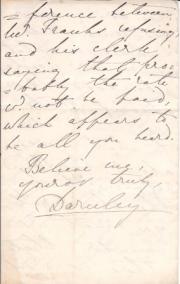 =ference between
Mr. Franks refusing,
and his clerk
saying that pro=
=bably the rate
wd. not be paid,
which appears to
be all you heard.
Believe me,
yours truly,
Darnley